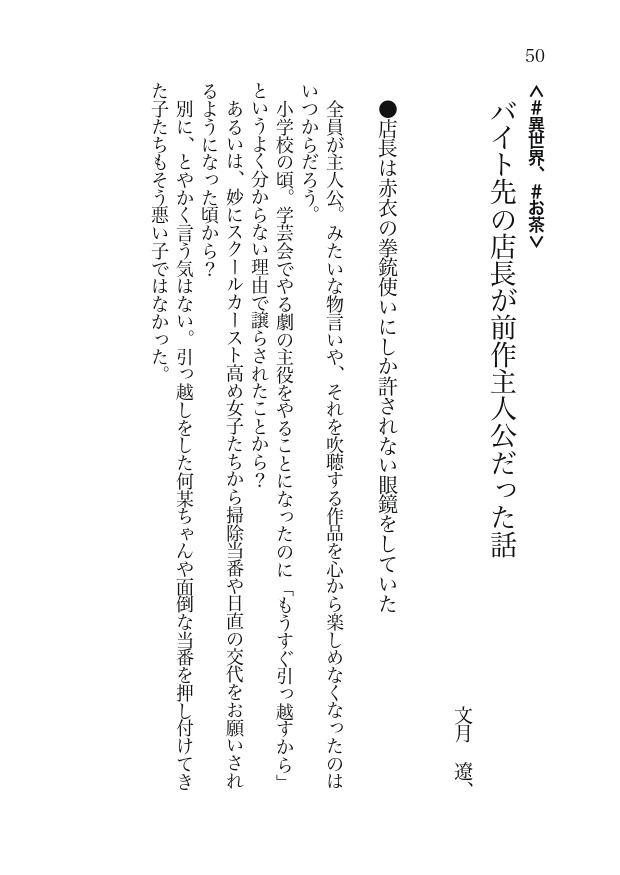 50
<#異世界、#お茶>
バイト先の店長が前作主人公だった話
文月　遼、
●店長は赤衣の拳銃使いにしか許されない眼鏡をしていた
全員が主人公。みたいな物言いや、それを吹聴する作品を心から楽しめなくなったのは
いつからだろう。
小学校の頃。学芸会でやる劇の主役をやることになったのに「もうすぐ引っ越すから」
というよく分からない理由で譲らされたことから？
あるいは、妙にスクールカースト高め女子たちから掃除当番や日直の交代をお願いされ
るようになった頃から？
別に、とやかく言う気はない。引っ越しをした何某ちゃんや面倒な当番を押し付けてき
た子たちもそう悪い子ではなかった。